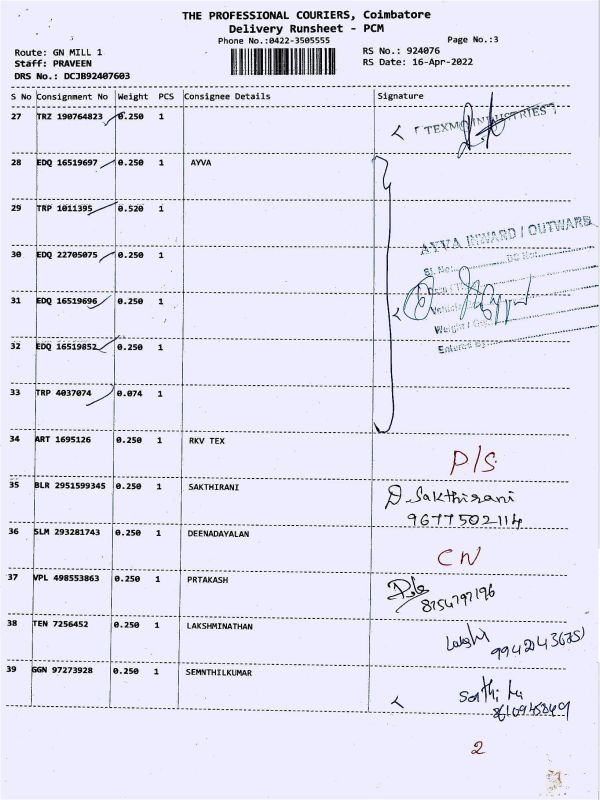 THE PROFESSIONAL COURIERS, Coimbatore
Delivery Runsheet - PCM
Phone No.:0422-3505555 Page No.:3
Route: GN MILL 1 RS No.: 924076
Staff: PRAVEEN RS Date: 16-Apr-2022
DRS No.: DCJB92407603
S No Consignment No Weight PCS Consignee Details Signature
27 TRZ 190764823 0.250 1 TEXMO INDUSTRIES
28 EDQ 16519697 0.250 1 AYVA
29 TRP 1011395 0.520 1
AYVA INWARD / OUTWARD
30 EDQ 22705075 0.250 1
Sl. No: DC No:
31 EDQ 16519696 0.250 1
Vehicle
Weight /
32 EDQ 16519852 0.250 1
Entered By:
33 TRP 4037074 0.074 1
34 ART 1695126 0.250 1 RKV TEX
P/S
35 BLR 2951599345 0.250 1 SAKTHIRANI D. Sakthirani
9677502114
36 SLM 293281743 0.250 1 DEENADAYALAN
CN
37 VPL 498553863 0.250 1 PRTAKASH
8754797196
38 TEN 7256452 0.250 1 LAKSHMINATHAN
39 GGN 97273928 0.250 1 SEMNTHILKUMAR
2